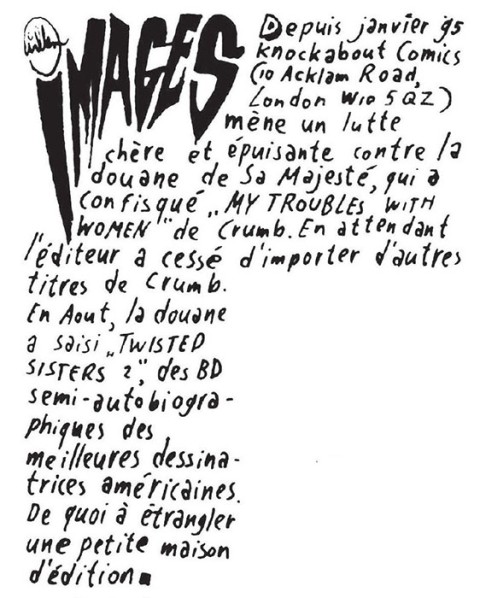 Willem
IMAGES
Depuis janvier 95
Knockabout Comics
(10 Acklam Road,
London W10 5QZ)
mène un lutte
chère et épuisante contre la
douane de Sa Majesté, qui a
confisqué „MY TROUBLES WITH
WOMEN" de Crumb. En attendant
l'éditeur a cessé d'importer d'autres
titres de Crumb.
En Aout, la douane
a saisi „TWISTED
SISTERS 2", des BD
semi-autobiogra-
phiques des
meilleures dessina-
trices américaines.
De quoi à étrangler
une petite maison
d'édition